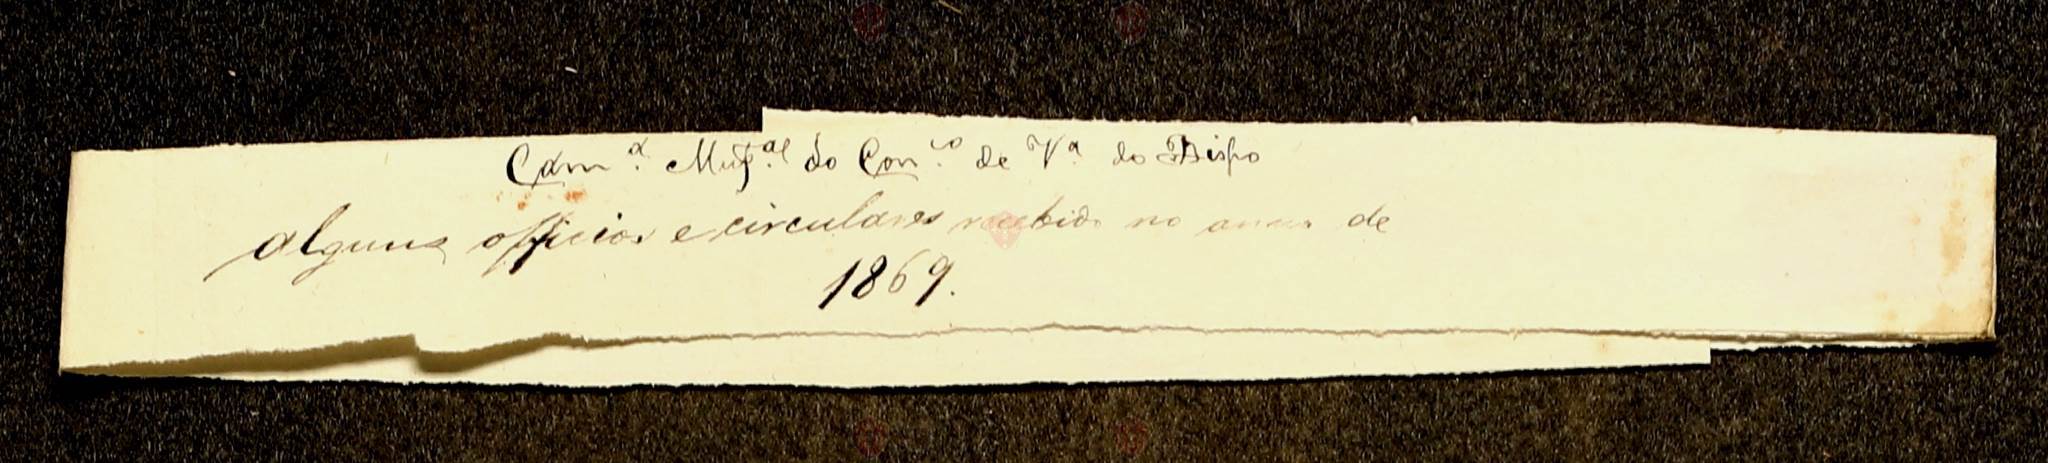 Cam.ª Mug.al do Con.co de Vª do Bispo
alguns officios e circulares recebido no anno de
1869.